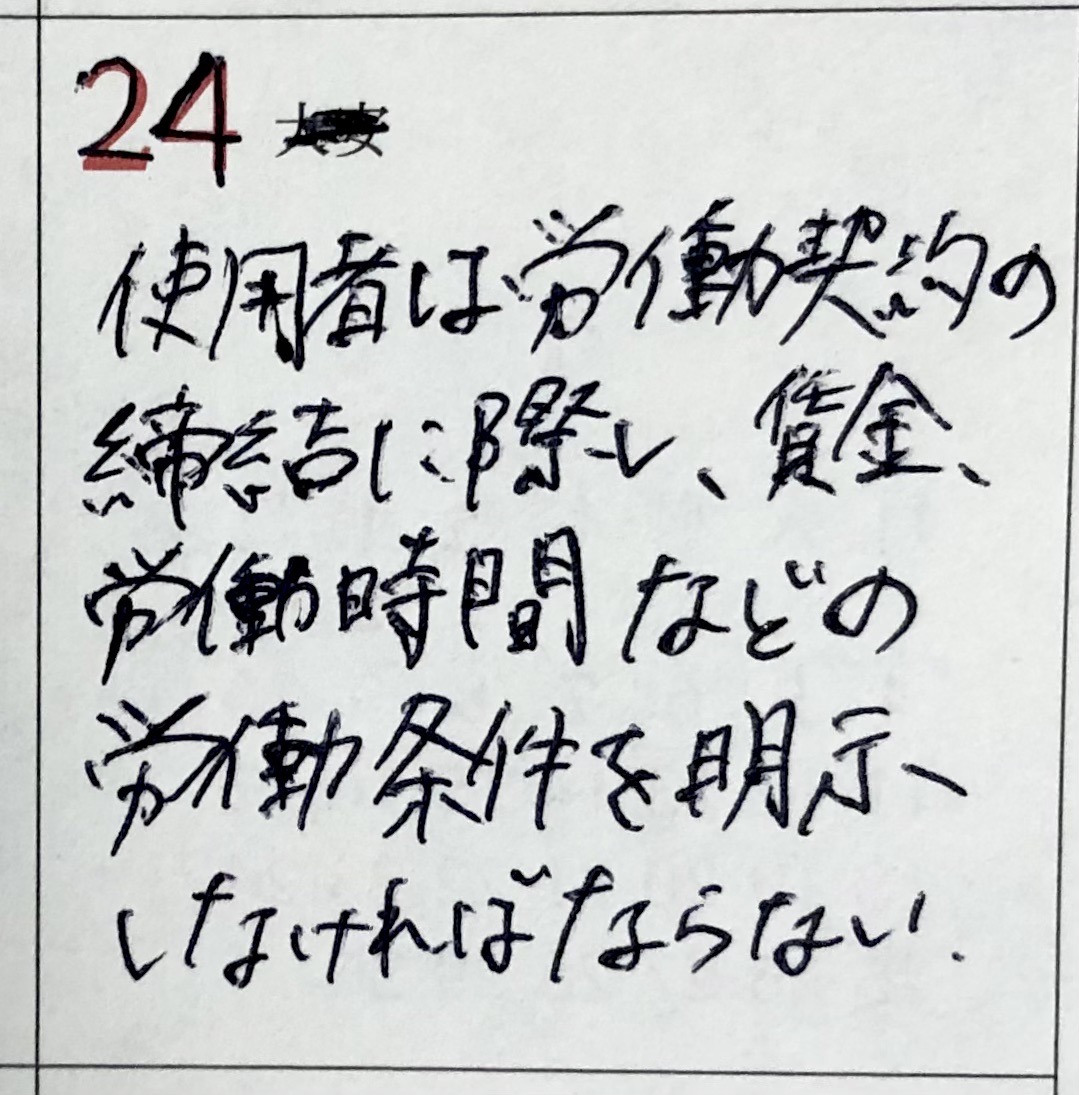 24 大安
使用者は労働契約の
締結に際し、賃金、
労働時間などの
労働条件を明示
しなければならない.